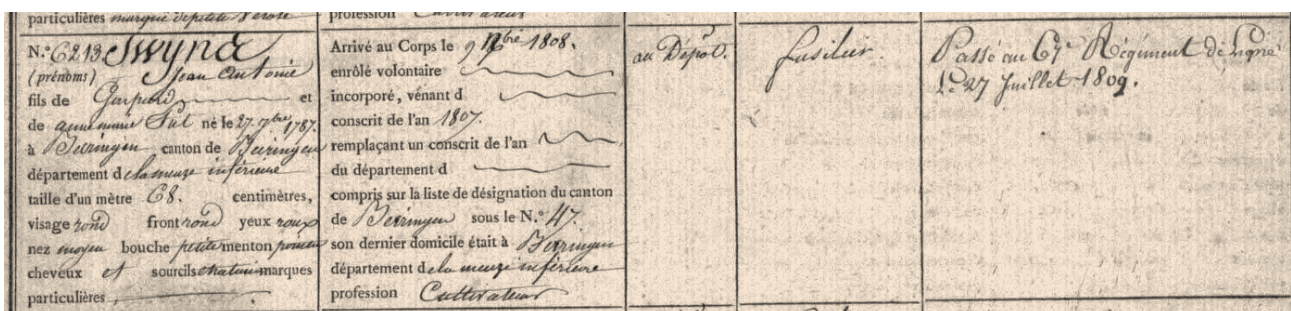 particulières marqué de petite Verole
profession Cultivateur
N.° 6213. Swyna
(prénoms) Jean Antonie
fils de Gaspard et
de anne marie né le 27. 7bre 1787.
à Beeringen canton de Beeringen
département de la meuze inférieure
taille d'un mètre 68. centimètres,
visage rond front rond yeux roux
nez moyen bouche petite menton pointu
cheveux et sourcils chatains marques
particulières
Arrivé au Corps le 9 1808.
enrôlé volontaire
incorporé, vénant d
conscrit de l'an 1807.
remplaçant un conscrit de l'an
du département d
compris sur la liste de désignation du canton
de Beeringen sous le N.° 47.
son dernier domicile était à Beeringen
département de la meuze inférieure
profession Cultivateur
au Dépôt.
fusilier.
Passé au 67e Régiment de Ligne
Le 27 Juillet 1809.